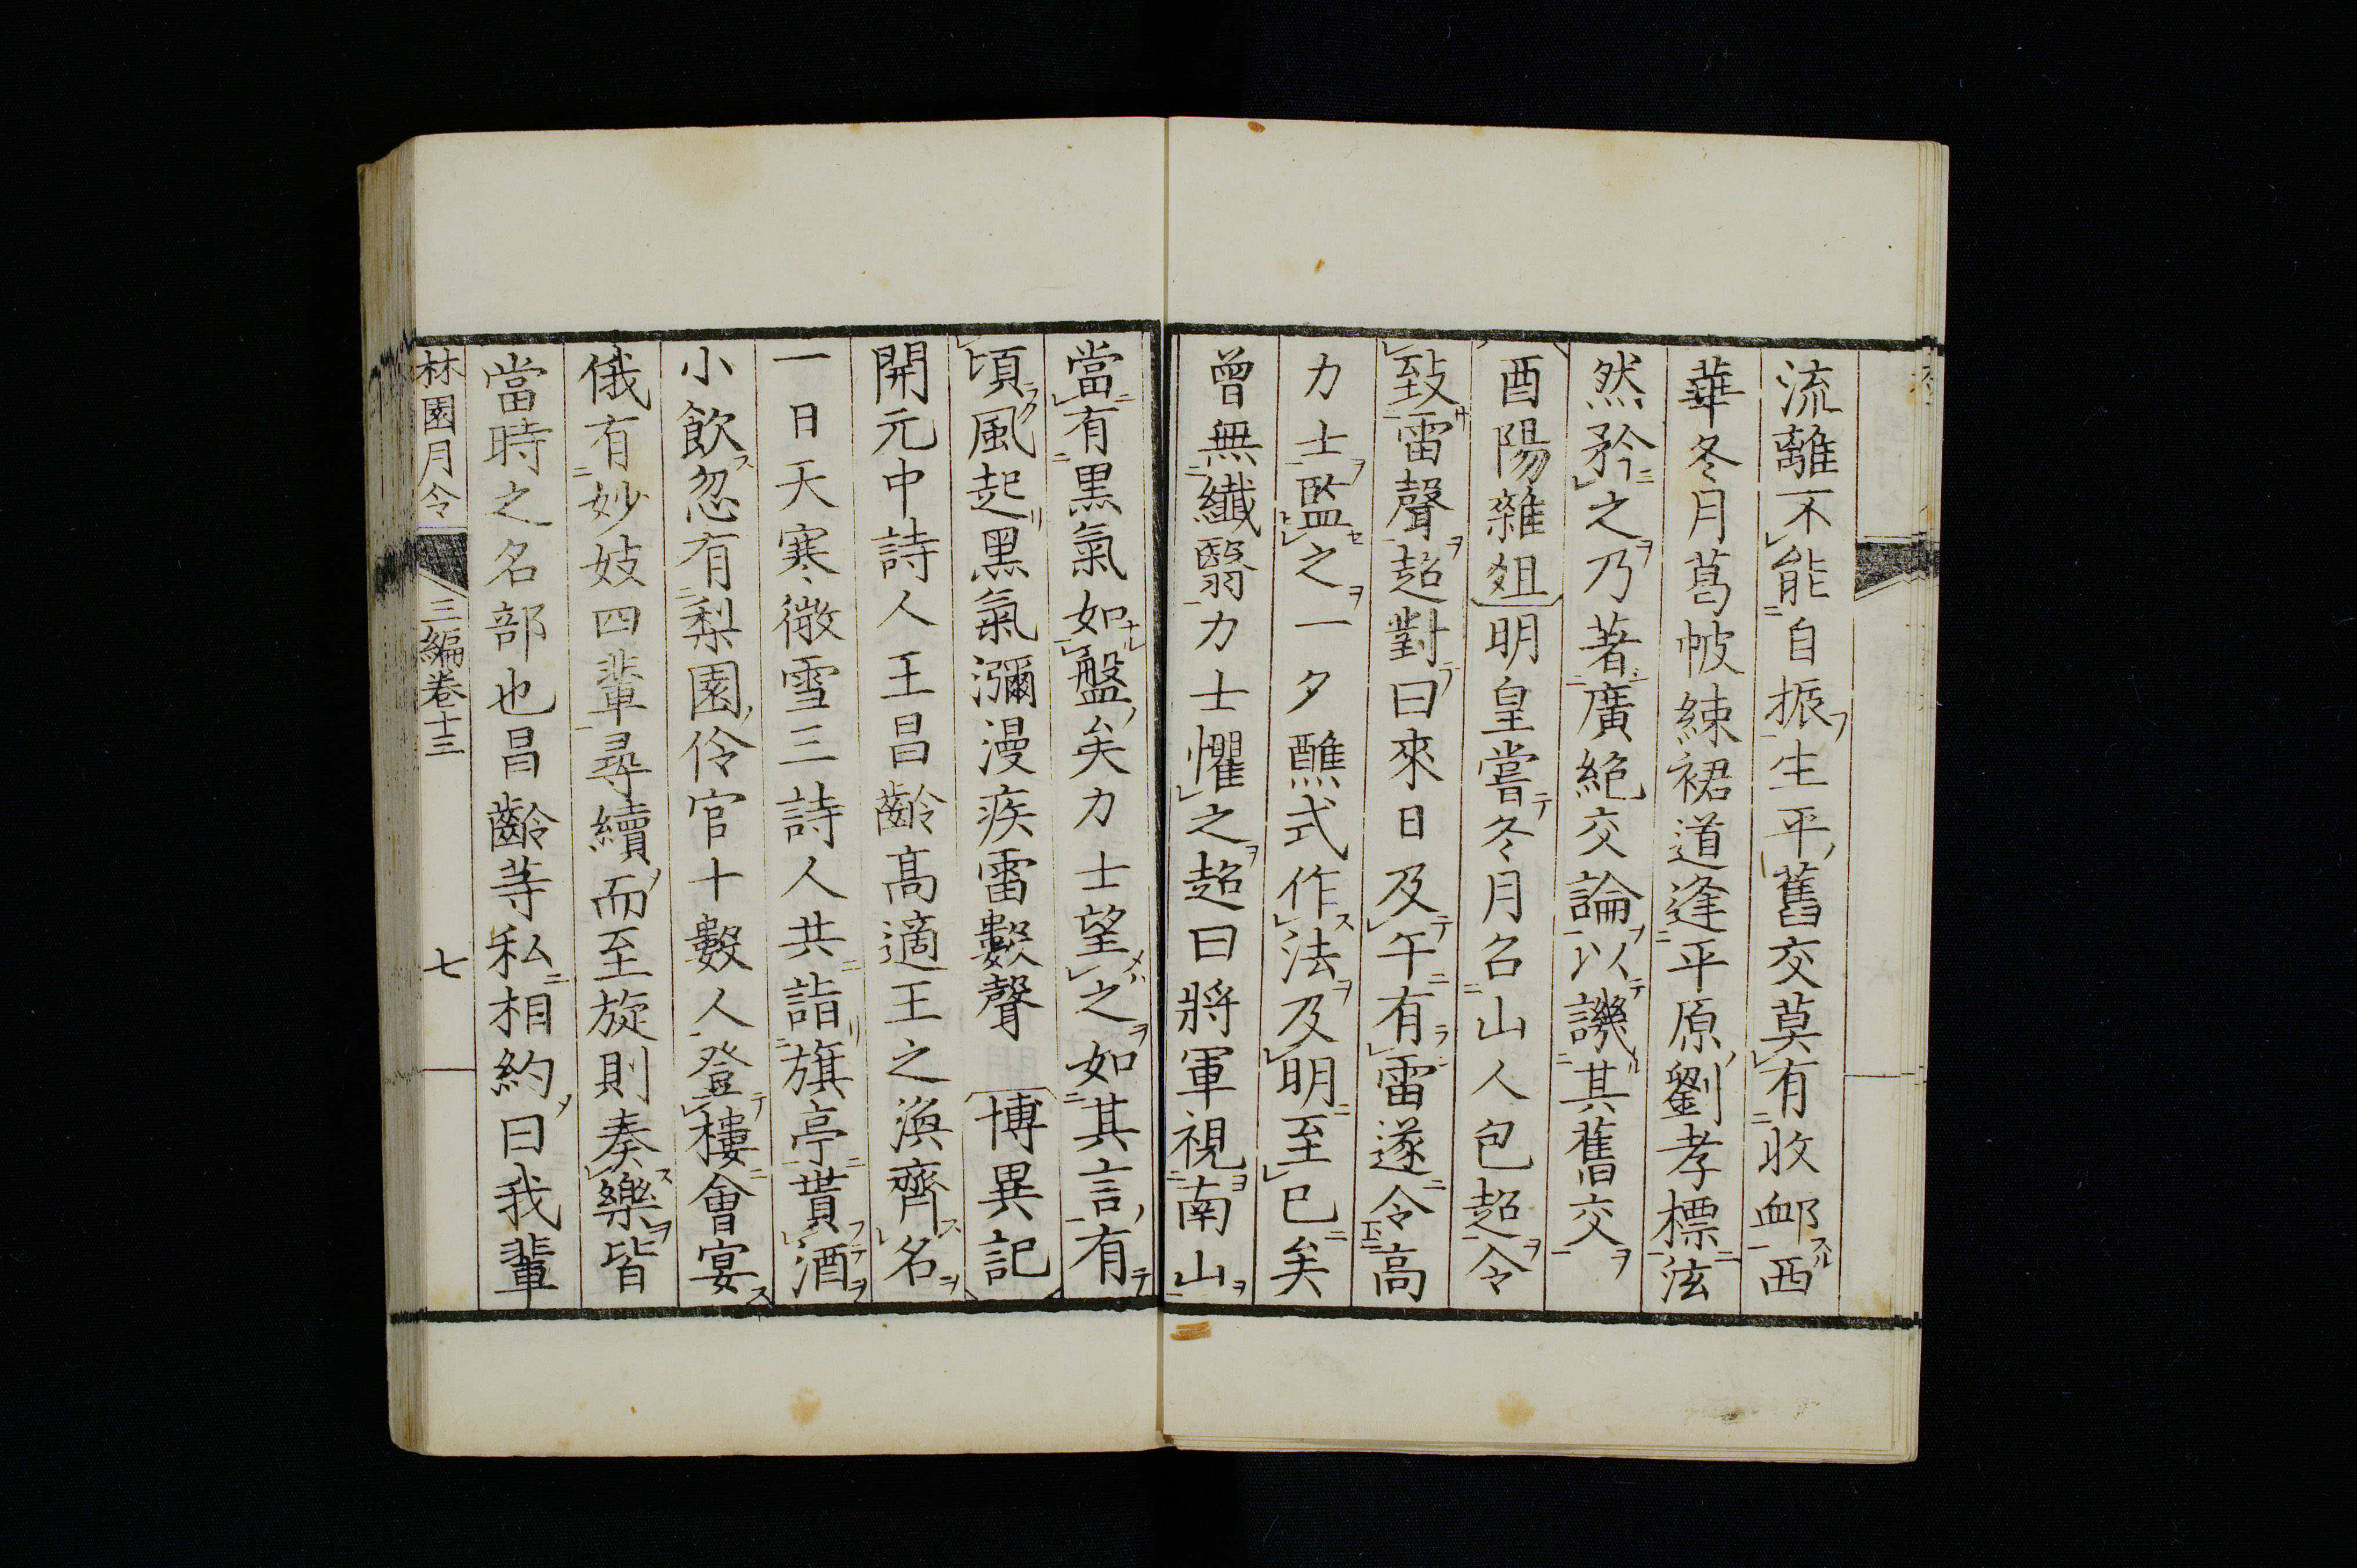 流離不能自振生平舊交莫有收䘏西
華冬月葛帔練裙道逢平原劉孝標泫
然矜之乃著廣絶交論以譏其舊交
酉陽雜俎明皇嘗冬月召山人包超令
致雷聲超對曰來日及午有雷遂令高
力士監之一夕醮式作法及明至巳矣
曾無纎翳力士懼之超曰將軍視南山
當有黒氣如盤矣力士望之如其言有
頃風起黒氣瀰漫疾雷數聲 博異記
開元中詩人王昌齡高適王之渙齊名
一日天寒微雪三詩人共詣旗亭貰酒
小飲忽有梨園伶官十數人登樓會宴
俄有妙妓四輩尋續而至旋則奏樂皆
當時之名部也昌齡等私相約曰我輩
林園月令 三編卷十三 七